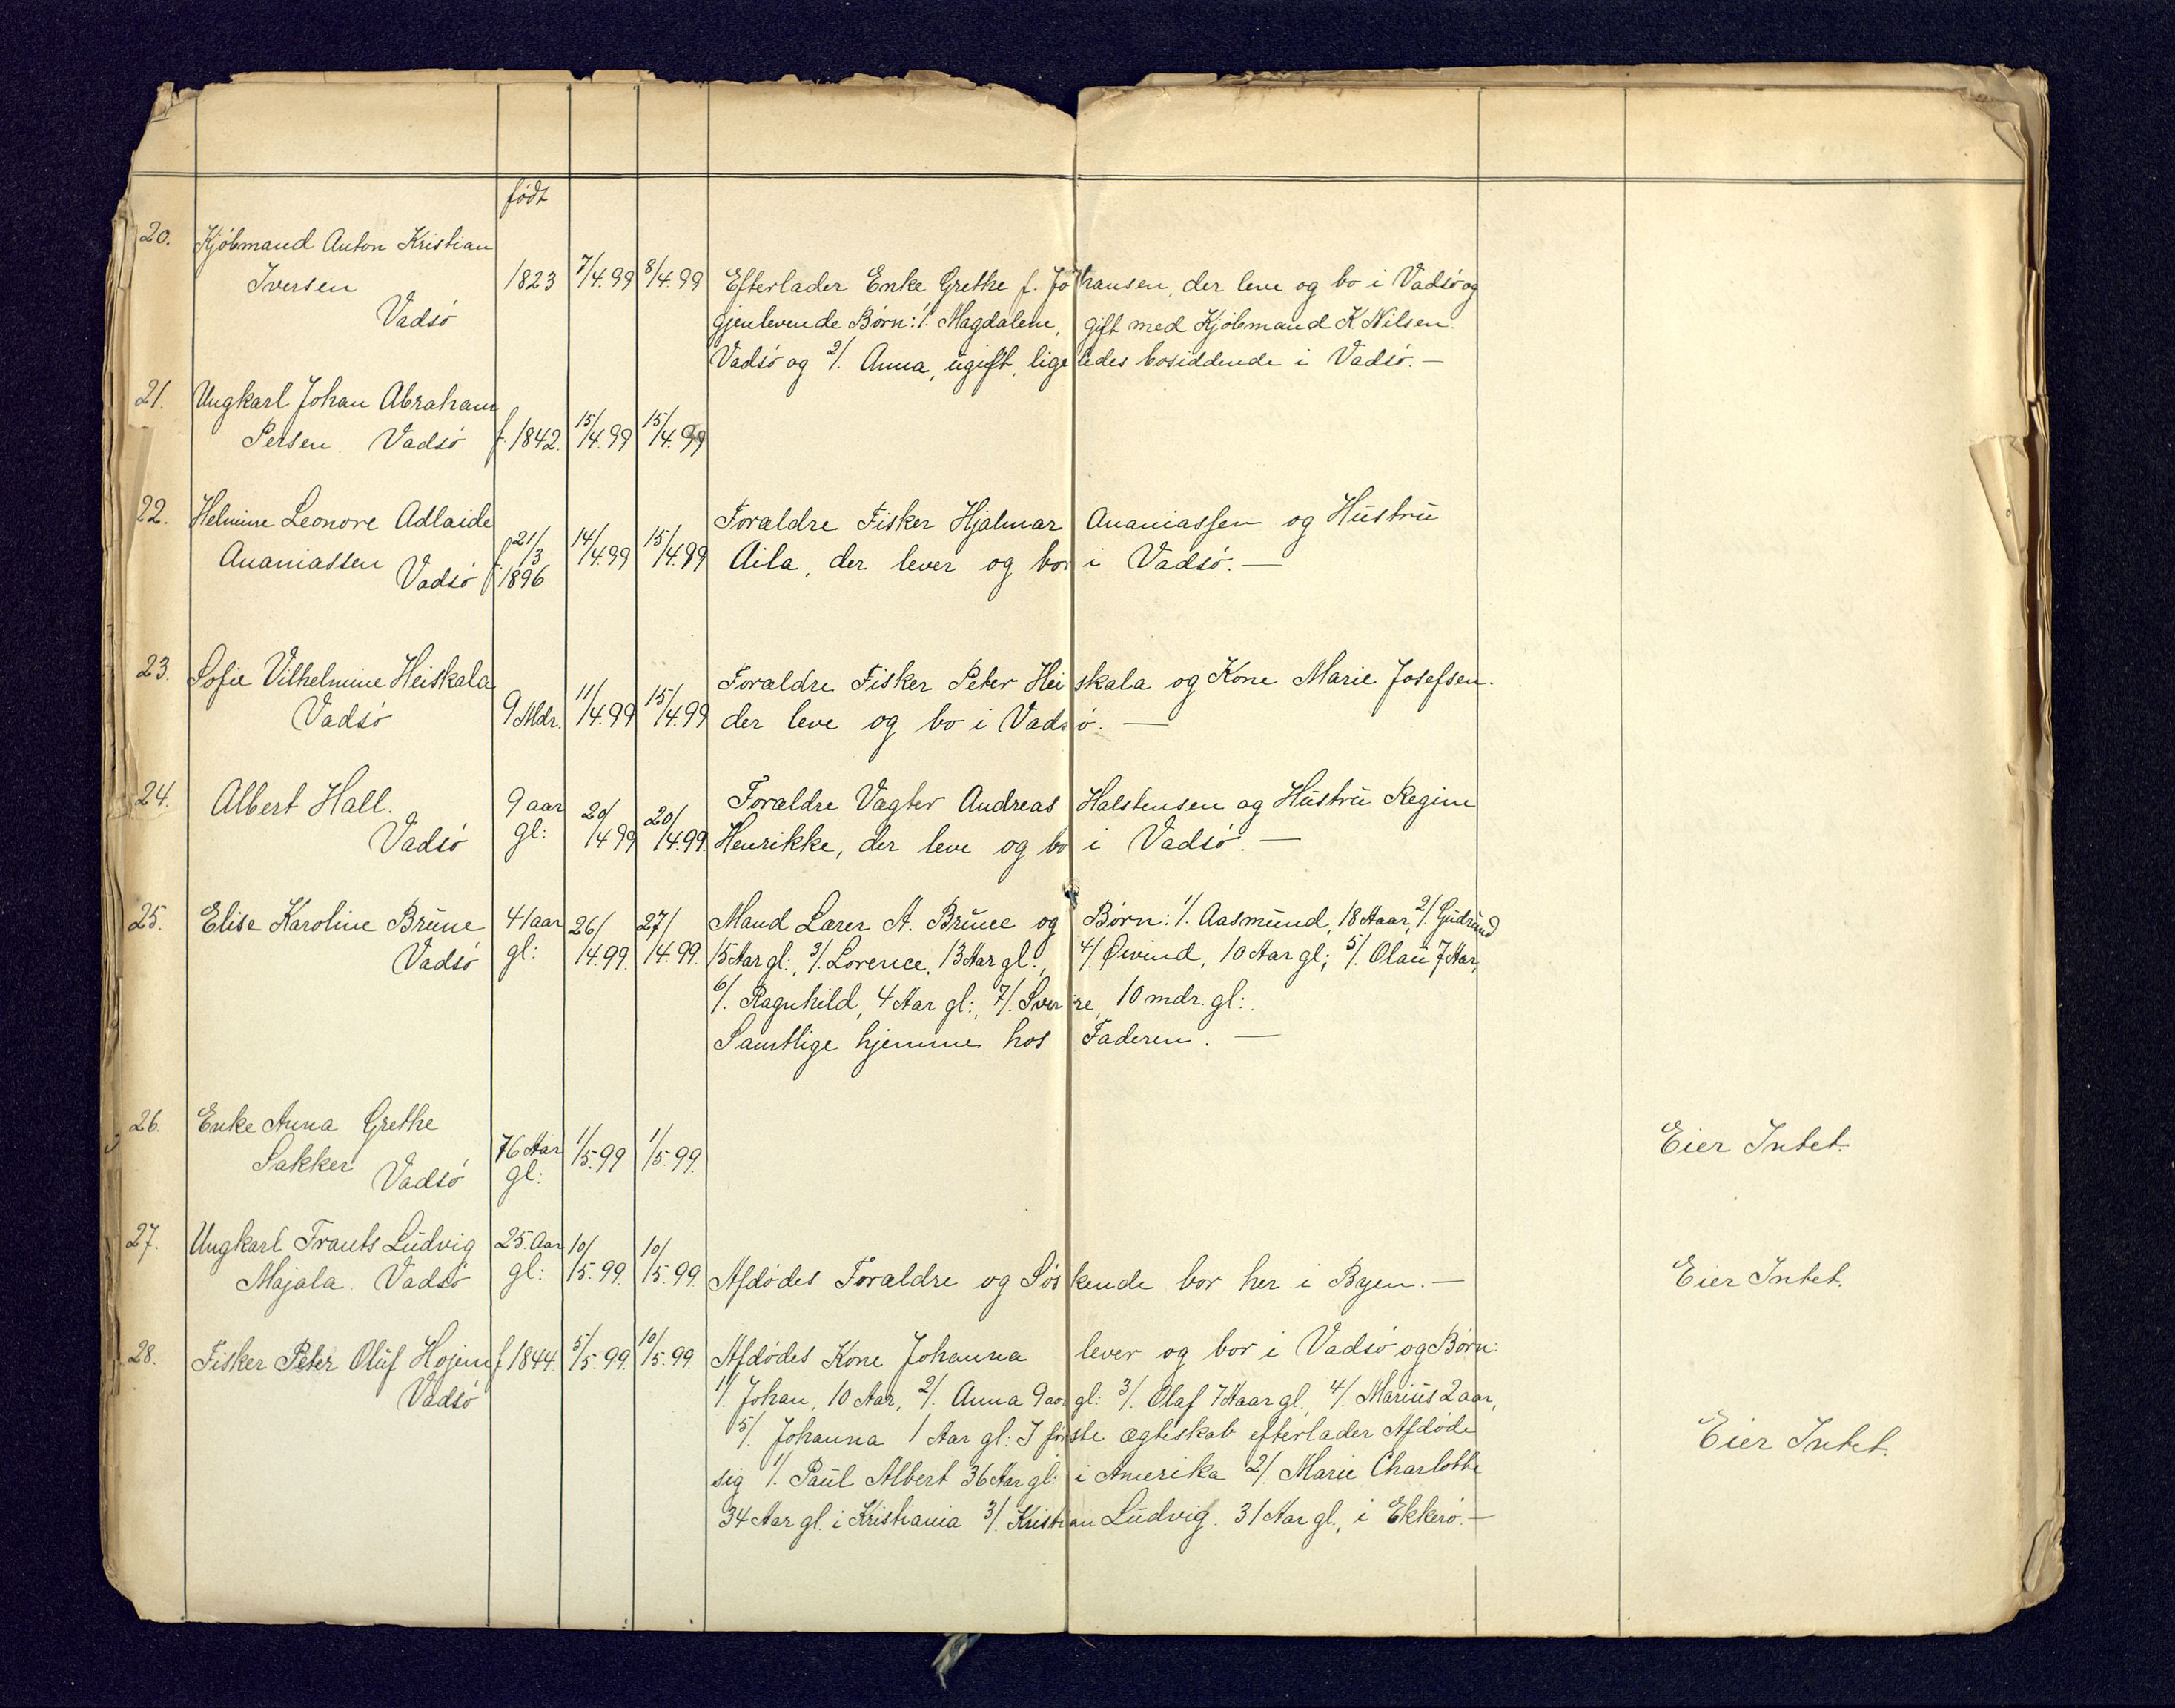 født
20. Kjøbmand Anton Kristian
Iversen 1823 7/4.99 8/4.99 Efterlader Enke Grethe f. Johansen, der leve og bo i Vadsø og
Vadsø gjenlevende Børn: 1/. Magdalene, gift med Kjøbmand K Nilsen.
Vadsø og 2/. Anna, ugift, ligeledes bosiddende i Vadsø. —
21. Ungkarl Johan Abraham
Persen. Vadsø f. 1842. 15/4.99 15/4.99
22. Helmine Leonore Adlaide Forældre Fisker Hjalmar Ananiassen og Hustru
Ananiassen f 21/3 14/4.99 15/4.99 Aila, der lever og bor i Vadsø. —
Vadsø 1896
23. Sofie Vilhelmine Heiskala Forældre Fisker Peter Heiskala og Kone Marie Josefsen.
Vadsø 9 Mdr. 11/4.99 15/4.99 der leve og bo i Vadsø. —
24. Albert Hall. 9 aar Forældre Vægter Andreas Halstensen og Hustru Regine
Vadsø gl: 20/4 99 20/4.99. Henrikke, der leve og bo i Vadsø. —
25. Elise Karoline Brune 41 aar 26/ 27/ Mand Lærer A. Brune og Børn: 1/. Aasmund, 18 Aaar, 2/. Gudrund
Vadsø gl: 4.99. 4.99. 15 Aar gl:, 3/. Lorence, 13 Aar gl:, 4/. Øivind, 10 Aar gl; 5/. Olau 7 Aar,
6/. Ragnhild, 4 Aar gl:, 7/. Sverre, 10 mdr. gl:.
Samtlige hjemme hos Faderen. —
26. Enke Anna Grethe
Sakker 76 Aar 1/5.99 1/5.99. Eier Intet.
Vadsø gl:
27. Ungkarl Frants Ludvig 25. Aar 10/ 10/
Majala. Vadsø gl: 5.99. 5.99. Afdødes Forældre og Søskende bor her i Byen. — Eier Intet.
28. Fisker Peter Oluf Hojem f 1844. 5/5.99. 10/5.99. Afdødes Kone Johanna lever og bor i Vadsø og Børn:
Vadsø 1/. Johan, 10 Aar, 2/. Anna 9 aar gl: 3/. Olaf 7 Aaar gl., 4/. Marius 2 aar,
5/. Johanna 1 Aar gl: I første ægteskab efterlader Afdøde Eier Intet.
sig 1/. Paul Albert 36 Aar gl: i Amerika 2/. Marie Charlotte
34 Aar gl. i Kristiania 3/. Kristian Ludvig. 31 Aar gl., i Ekkerø. —